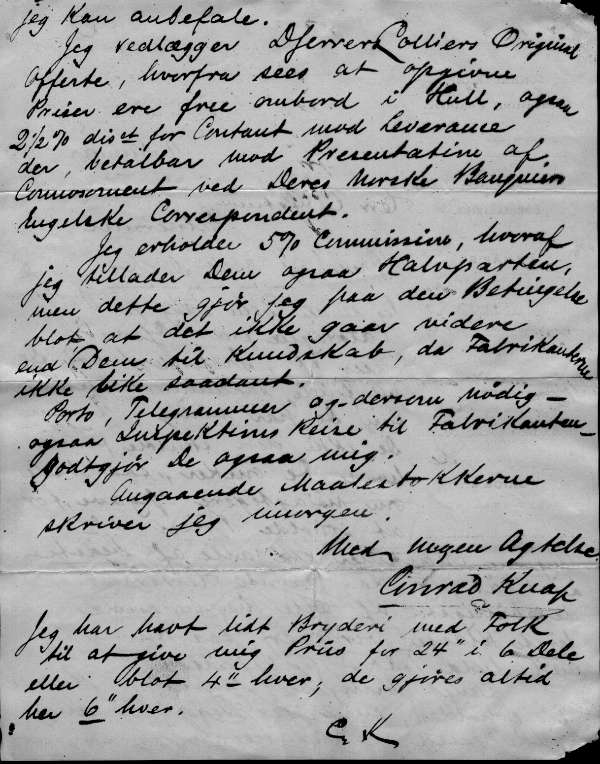 jeg kan anbefale.
Jeg vedlægger DHerrer Colliers Original
Offerte, hvorfra sees at opgivne
Priser ere free ombord i Hull, ogsaa
2½% disct for Contant mod Leverance
der, betalbar mod Presentation af
Connossement ved Deres Norske Banquiers
Engelske Correspondent.
Jeg erholder 5% Commission, hvoraf
jeg tillader Dem ogsaa Halvparten,
men dette gjør jeg paa den Betingelse
blot at det ikke gaar videre
end Dem til Kundskab, da Fabrikanterne
ikke like saadant.
Porto, Telegrammer og - dersom nödig -
ogsaa Inspektions Reise til Fabrikanten -
godtgjør De ogsaa mig.
Angaaende Maalestokkerne
skriver jeg imorgen.
Med megen Agtelse
Conrad Knap
Jeg har havt lidt Bryderi med Folk
til at give mig Priis for 24" i 6 Dele
eller blot 4" hver; de gjøres altid
her 6" hver.
C. K